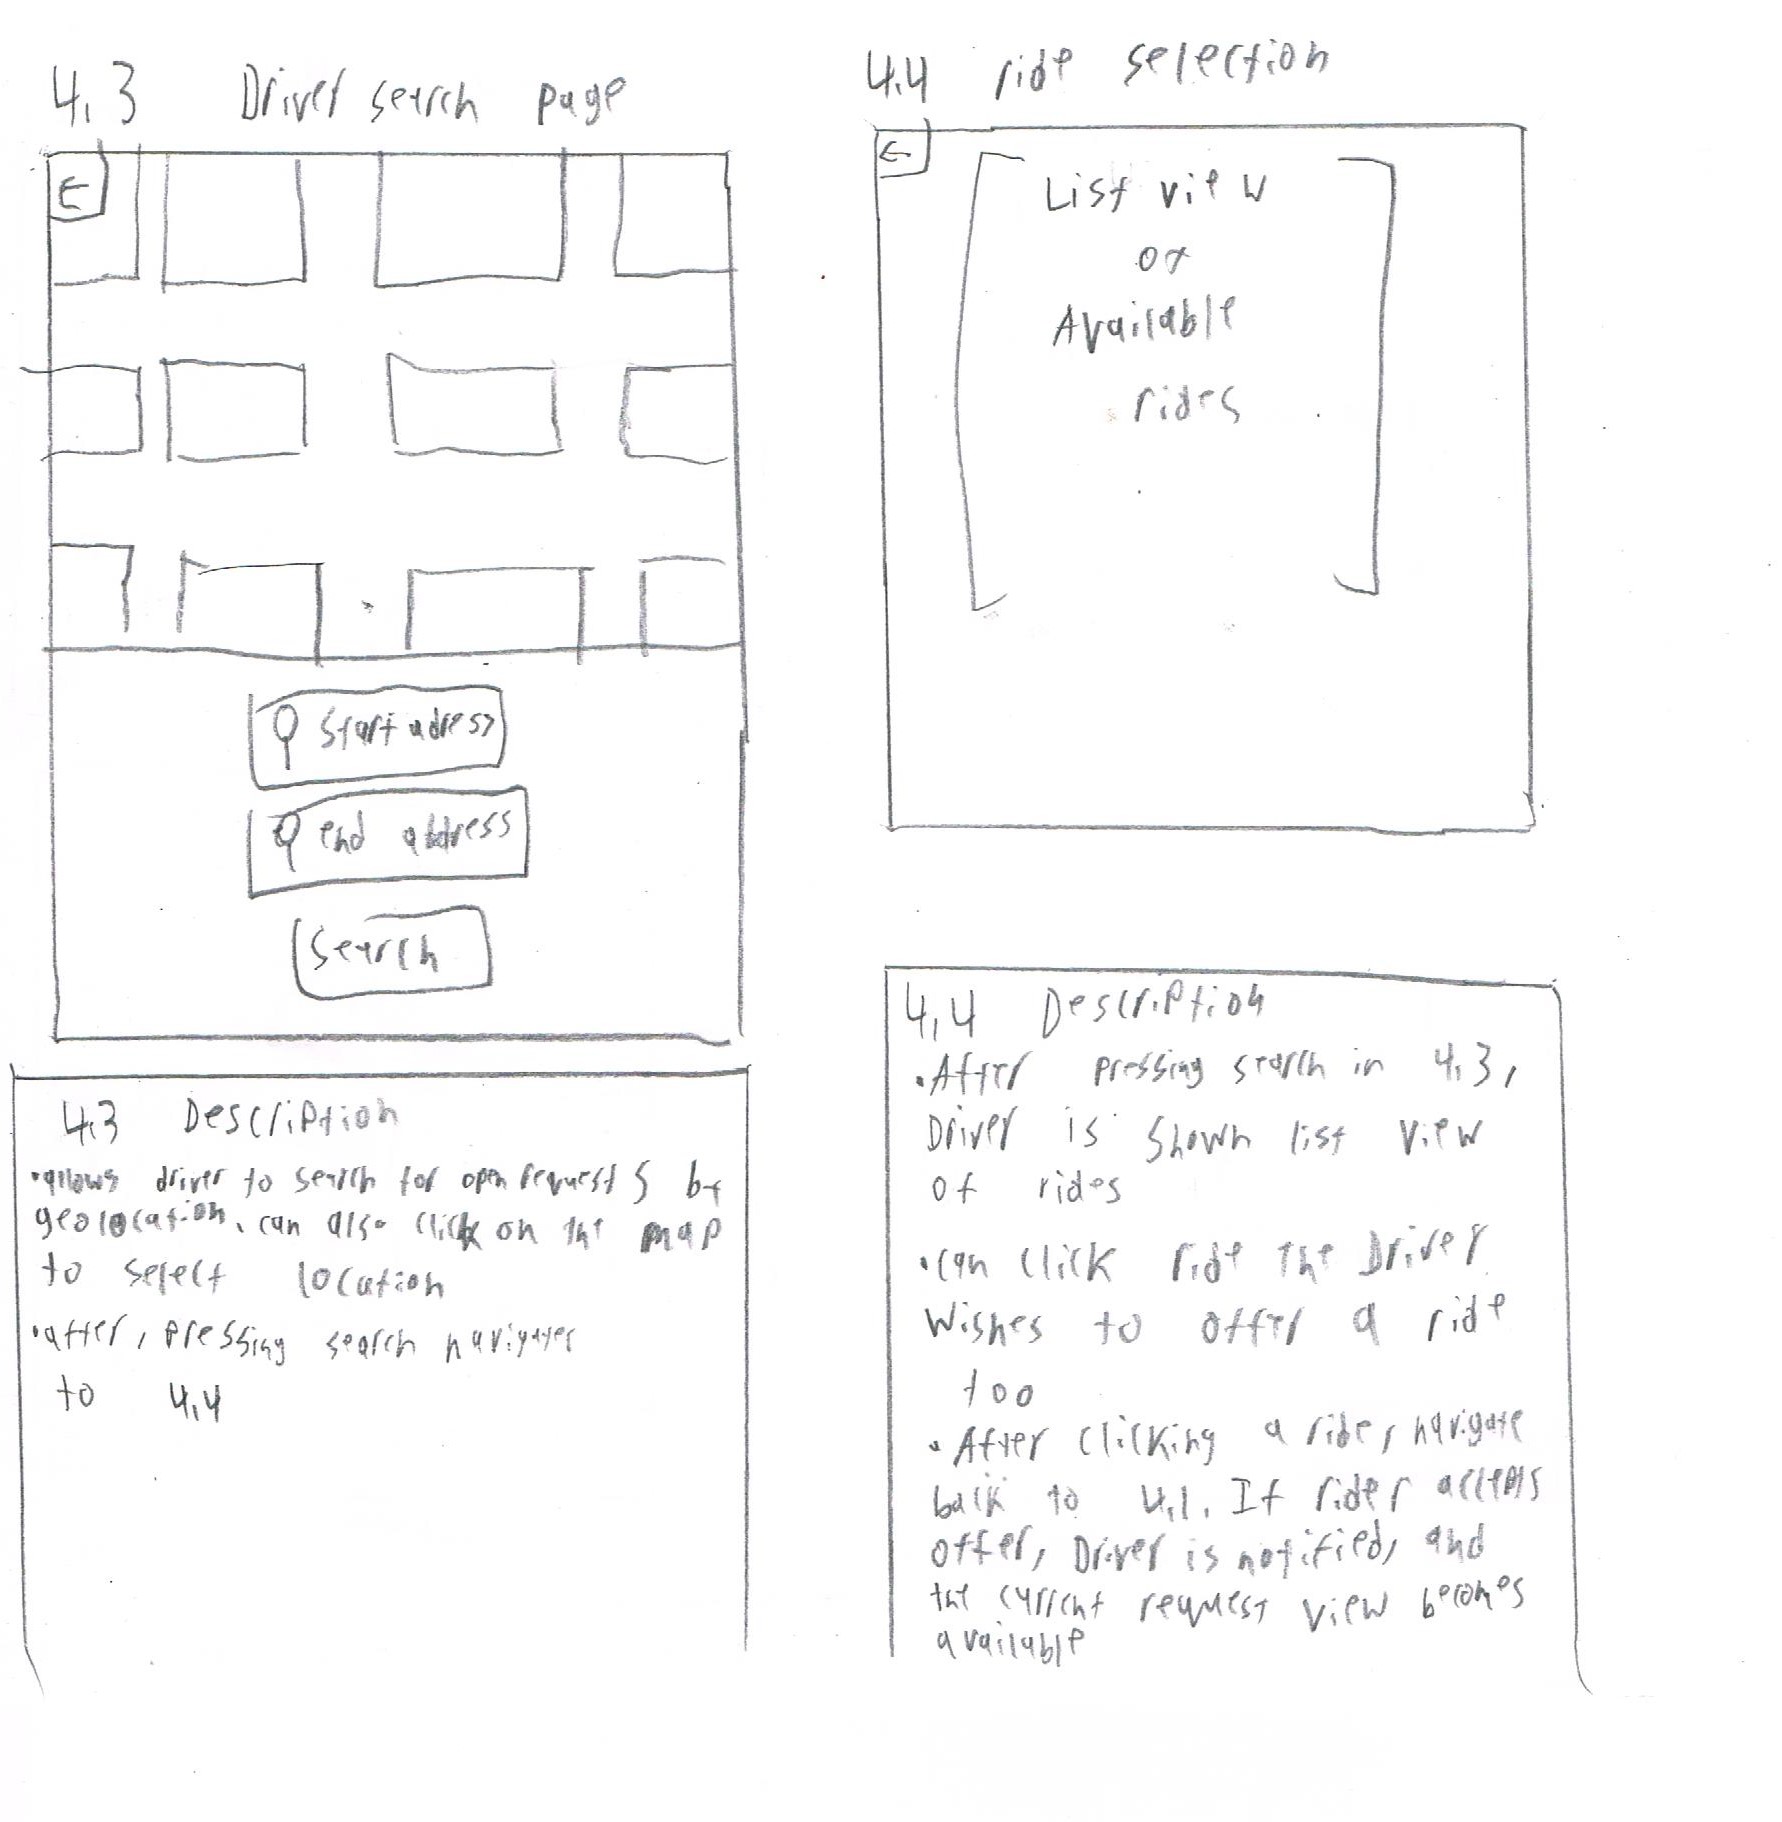 4.3 Driver search page
←
start adress
end address
search
4.3 Description
•allows driver to search for open requests by
geolocation. can also click on the map
to select location
•after, pressing search navigates
to 4.4
4.4 ride selection
←
List view
of
Available
rides
4.4 Description
•After pressing search in 4.3,
Driver is shown list view
of rides
•can click ride the Driver
Wishes to offer a ride
too
•After clicking a ride, navigate
back to 4.1. If rider accepts
offer, Driver is notified, and
the current request view becomes
available